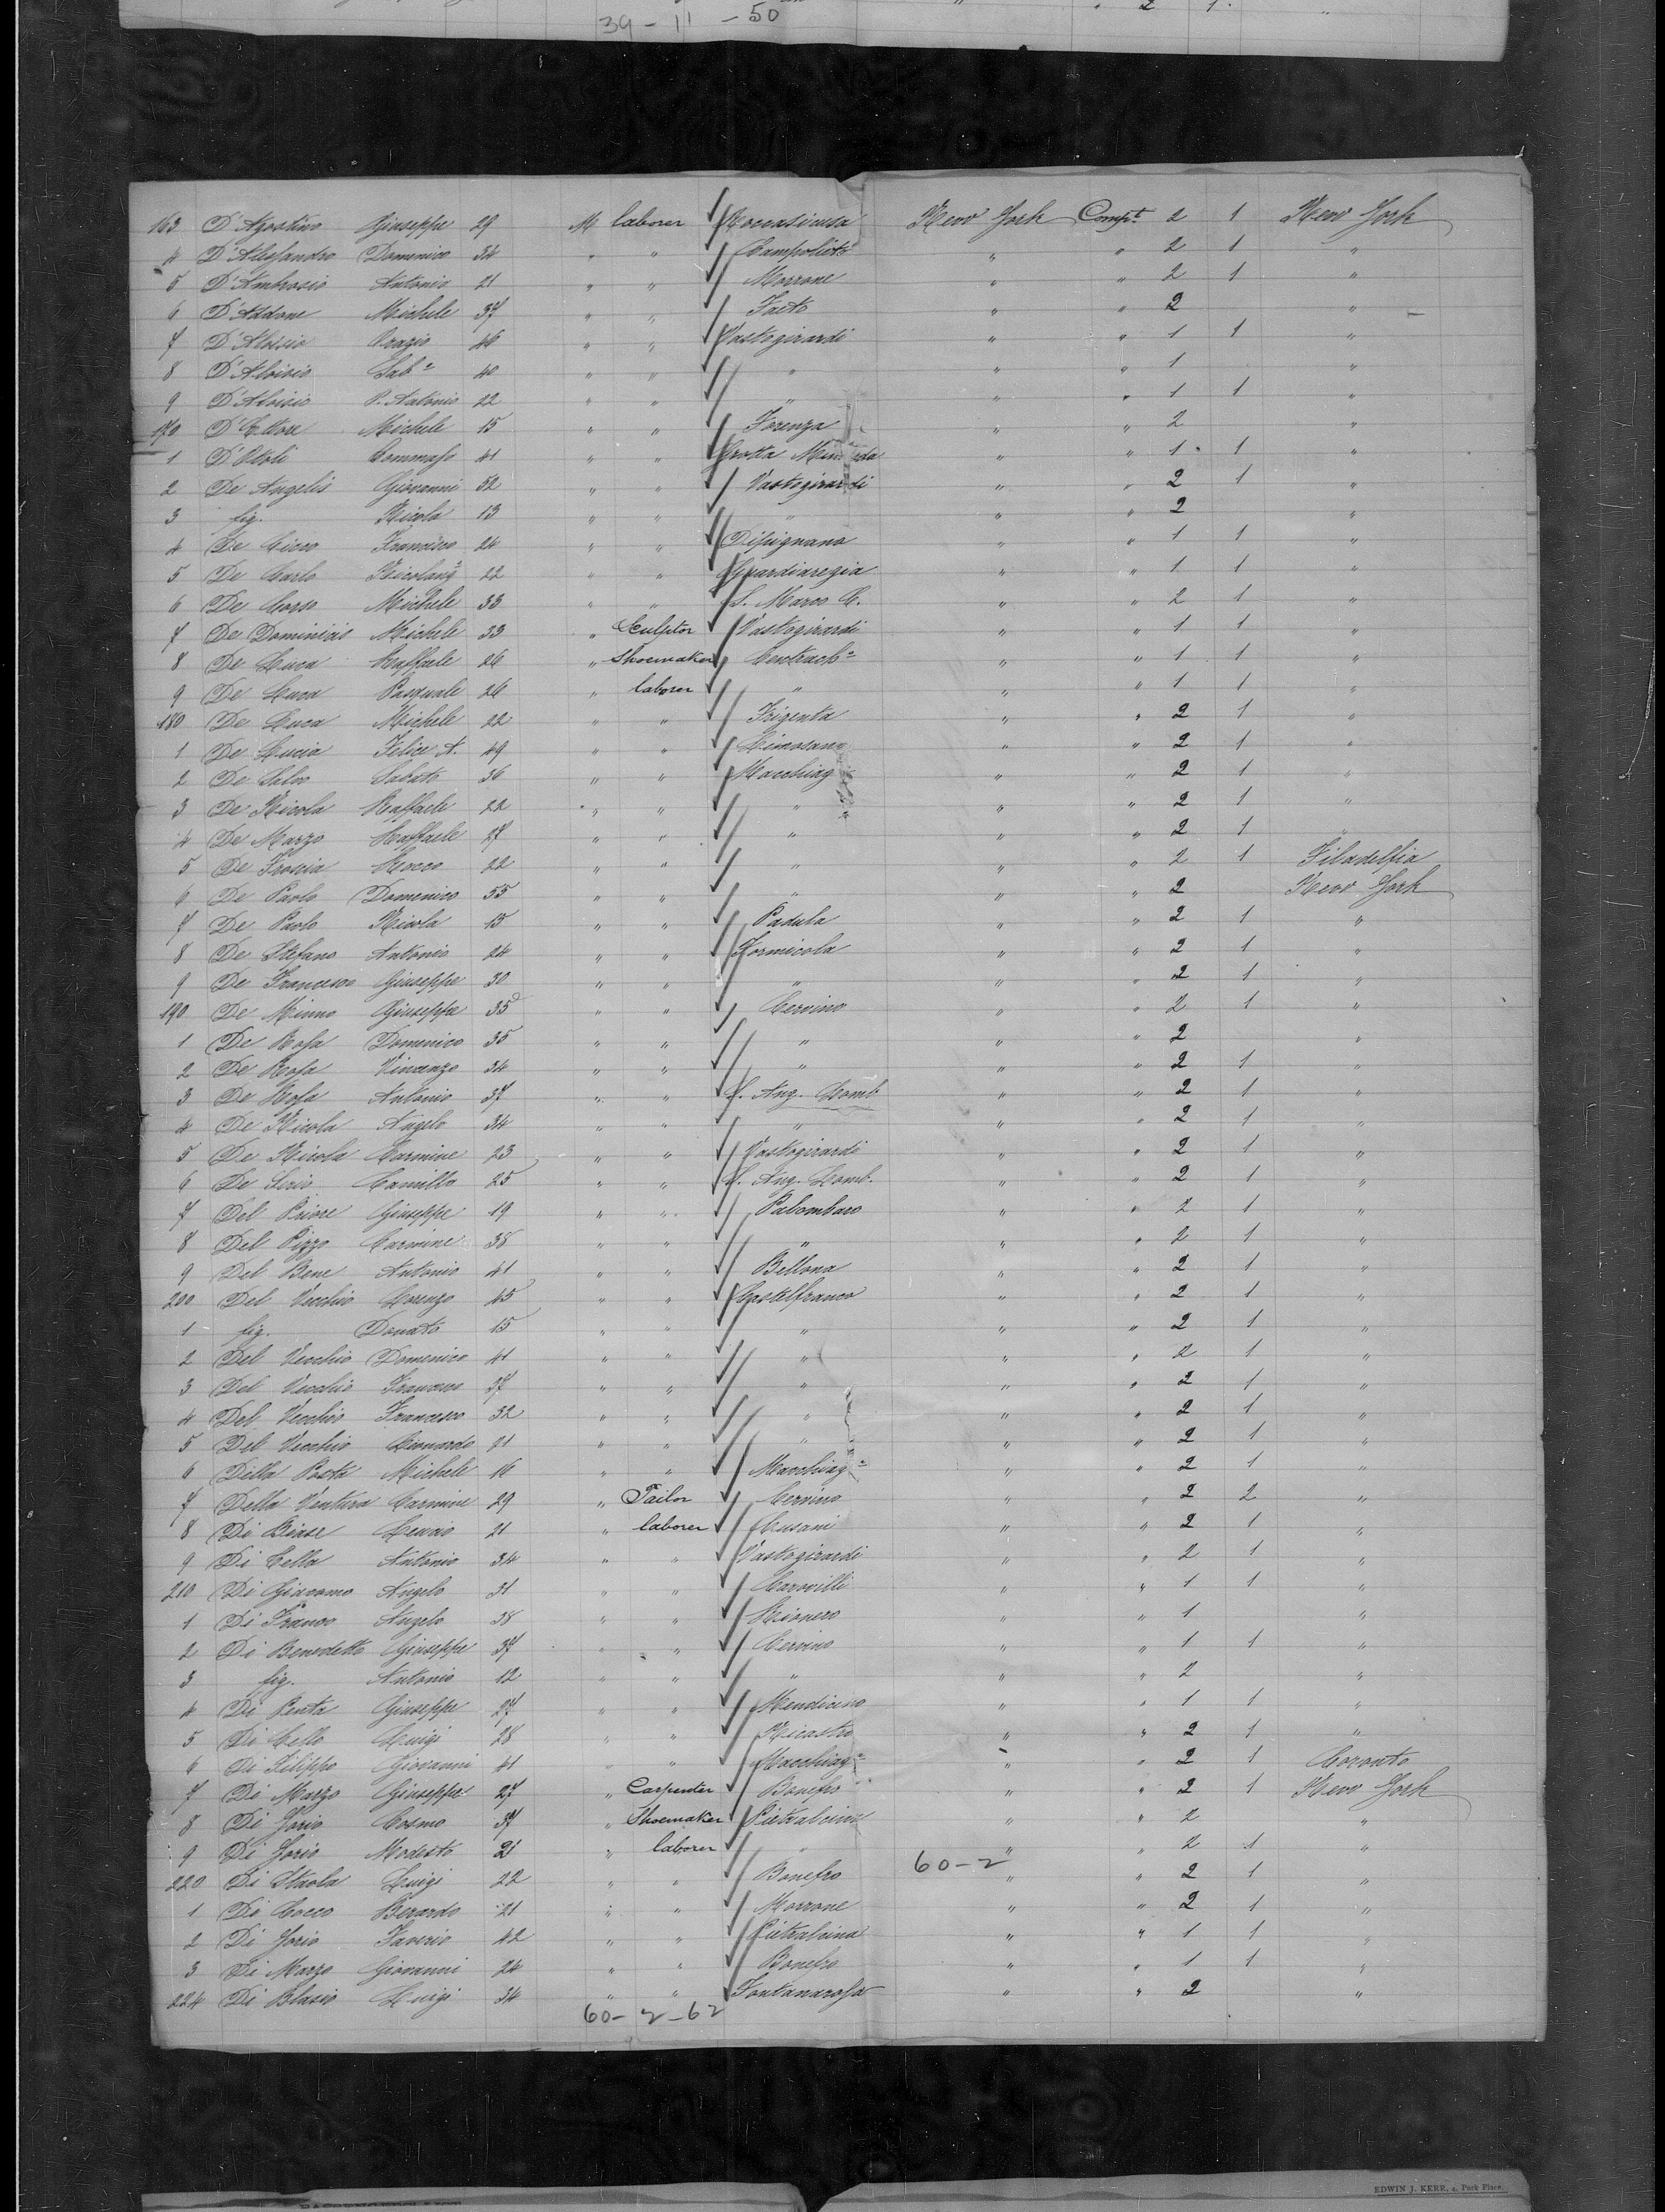 39 - 11 - 50
163 D'Agostino Giuseppe 29 M laborer Roccasicusa New York Compt 2 1 New York
4 D'Alessandro Domenico 34 " " Campolieto " " 2 1 "
5 D'Ambrosio Antonio 21 " " Morrone " " 2 1 "
6 D'Addone Michele 37 " " Faeto " " 2 "
7 D'Aloisio Orazio 46 " " Vastogirardi " " 1 1 "
8 D'Aloisio Sab.e 40 " " " " " 1 "
9 D'Aloisio P. Antonio 22 " " " " " 1 1 "
170 D'Ettore Michele 15 " " Forenza " " 2 "
1 D'Itoli Tommaso 41 " " Grotta " " 1 1 "
2 De Angelis Giovanni 52 " " Vastogirardi " " 2 1 "
3 fig. Nicola 13 " " " " " 2 "
4 De Cicco Francisco 24 " " Dipignano " " 1 1 "
5 De Carlo Nicolang.o 22 " " Guardiaregia " " 1 1 "
6 De Corso Michele 33 " " S. Marco C. " " 2 1 "
7 De Dominicis Michele 33 " Sculptor Vastogirardi " " 1 1 "
8 De Luca Raffaele 26 " Shoemaker " " 1 1 "
9 De Luca Pasquale 26 " laborer " " " 1 1 "
180 De Luca Michele 22 " " Frigenta " " 2 1 "
1 De Lucia Felice A. 49 " " Limosano " " 2 1 "
2 De Salvo Sabato 36 " " Macchiag " " 2 1 "
3 De Nicola Raffaele 22 " " " " " 2 1 "
4 De Marzo Raffaele 27 " " " " " 2 1 "
5 De Rocco 22 " " " " " 2 1 Filadelfia
6 De Paolo Domenico 55 " " " " " 2 New York
7 De Paolo Nicola 15 " " Padula " " 2 1 "
8 De Stefano Antonio 24 " " Formicola " " 2 1 "
9 De Francesco Giuseppe 30 " " " " " 2 1 "
190 De Minno Giuseppe 35 " " Cervino " " 2 1 "
1 De Rosa Domenico 35 " " " " " 2 "
2 De Rosa Vincenzo 34 " " " " " 2 1 "
3 De Rosa Antonio 37 " " S. Ang. Lomb " " 2 1 "
4 De Nicola Angelo 34 " " " " " 2 1 "
5 De Nicola Carmine 23 " " Vastogirardi " " 2 1 "
6 De Camillo 25 " " S. Ang. Lomb. " " 2 1 "
7 Del Priore Giuseppe 19 " " Palombaro " " 2 1 "
8 Del Pizzo Carmine 38 " " " " " 2 1 "
9 Del Bene Antonio 41 " " Bellona " " 2 1 "
200 Del Vecchio Lorenzo 45 " " Castelfranco " " 2 1 "
1 fig. Donato 15 " " " " " 2 1 "
2 Del Vecchio Domenico 41 " " " " " 2 1 "
3 Del Vecchio Francesco 37 " " " " " 2 1 "
4 Del Vecchio Francesco 32 " " " " " 2 1 "
5 Del Vecchio Leonardo 21 " " " " " 2 1 "
6 Della Posta Michele 16 " " Macchiag.e " " 2 1 "
7 Della Ventura Carmine 29 " Tailor Cervino " " 2 2 "
8 Di Biase 21 " laborer " " 2 1 "
9 Di Cella Antonio 34 " " Vastogirardi " " 2 1 "
210 Di Giacomo Angelo 31 " " Carovilli " " 1 1 "
1 Di Franco Angelo 38 " " Rionero " " 1 "
2 Di Benedetto Giuseppe 37 " " Cervino " " 1 1 "
3 fig. Antonio 12 " " " " " 2 "
4 Di Penta Giuseppe 27 " " Mendicino " " 1 1 "
5 Di Cello Luigi 28 " " Nicastro " " 2 1 "
6 Di Filippo Giovanni 41 " " Macchiag.e " " 2 1 Toronto
7 Di Marzo Giuseppe 27 " Carpenter Bonefro " " 2 1 New York
8 Di Jorio Cosmo 37 " Shoemaker Pietralcina " " 2 "
9 Di Jorio Modesto 21 " laborer " " " 2 1 "
60-2
220 Di Luigi 22 " " Bonefro " " 2 1 "
1 Di Cocco Berardo 21 " " Morrone " " 2 1 "
2 Di Jorio Saverio 42 " " Pietralcina " " 1 1 "
3 Di Marzo Giovanni 24 " " Bonefro " " 1 1 "
224 Di Blasio Luigi 34 " " Fontanarosa " " 2 "
60-2-62
EDWIN J. KERR, 4, Park Place.